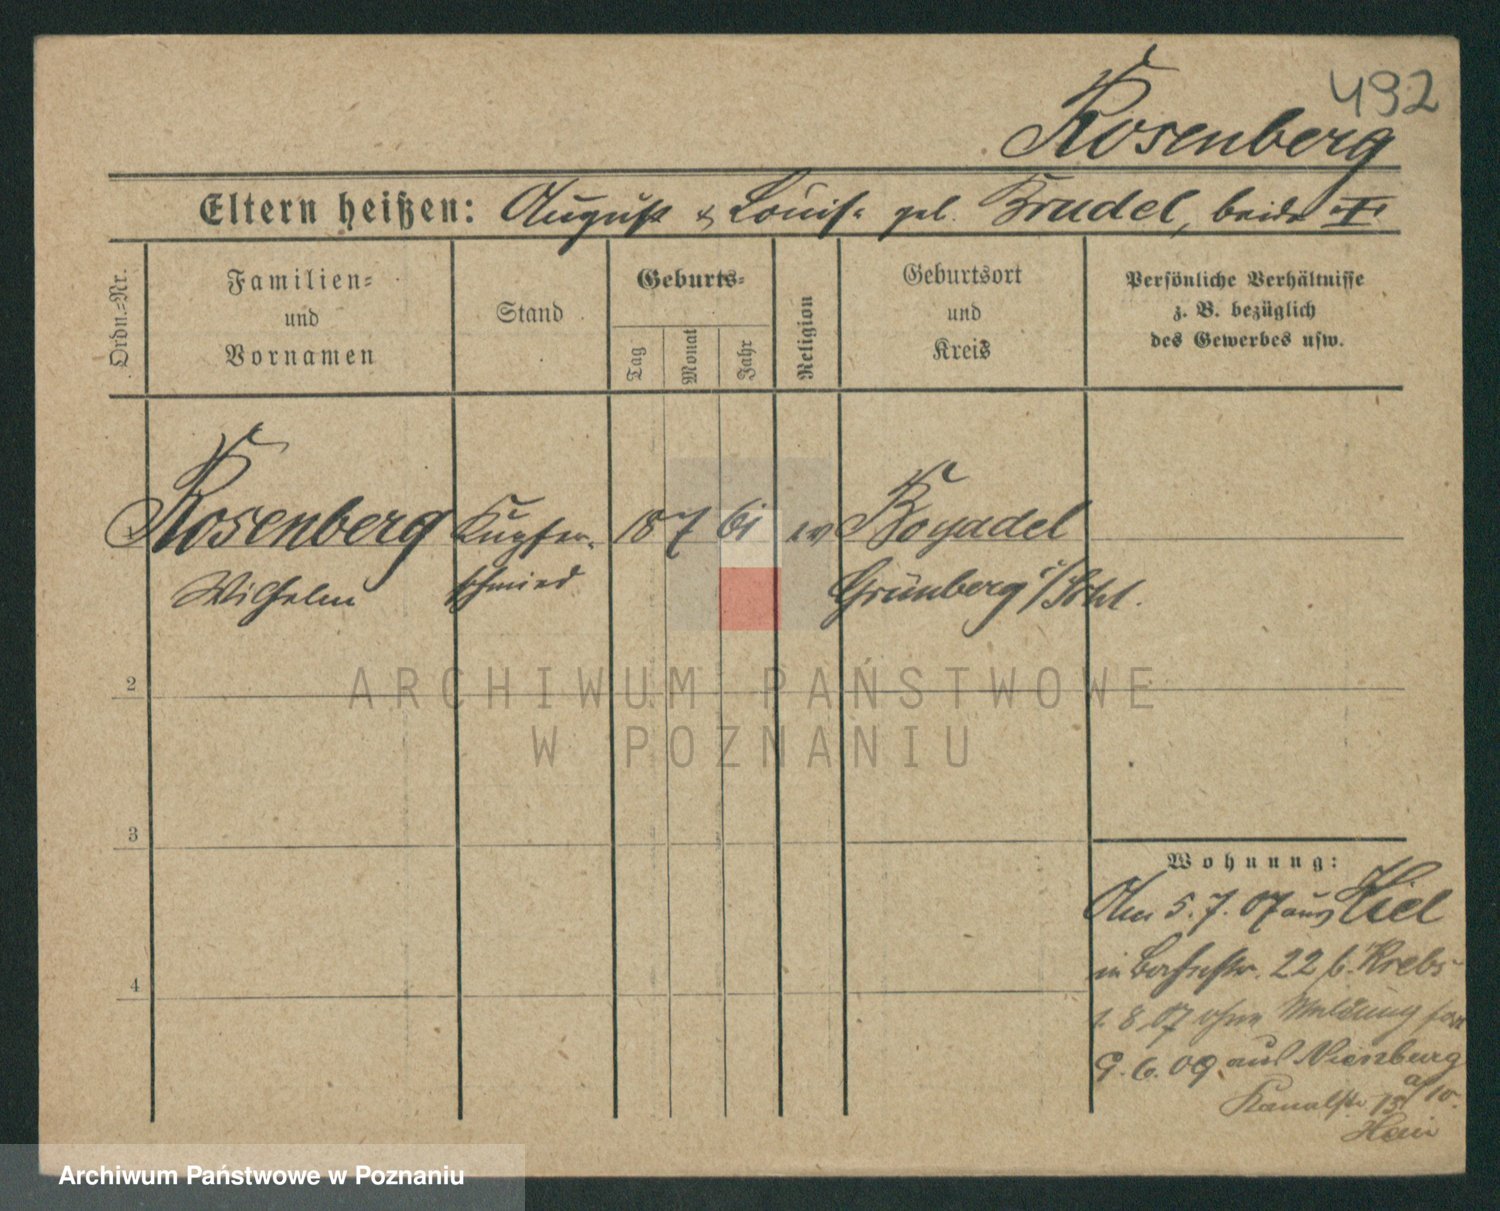 492
Rosenberg
Eltern heißen: August & Louise geb. Brudel, beide †
Ordn.=Nr.
Familien=
und
Vornamen
Stand
Geburts=
Tag
Monat
Jahr
Religion
Geburtsort
und
Kreis
Persönliche Verhältnisse
z. B. bezüglich
des Gewerbes usw.
Rosenberg Kupfer- 18 7 61 ev Boyadel
Wilhelm schmied Grünberg i/Schl.
2
3
4
Wohnung:
Am 5. 7. 07 aus Kiel
in 22 b. Krebs
1. 8. 07 ohne Meldung fort
9. 6. 09. aus Nienburg
Kanalstr. 15 a/W.
ARCHIWUM PAŃSTWOWE
W POZNANIU
Archiwum Państwowe w Poznaniu